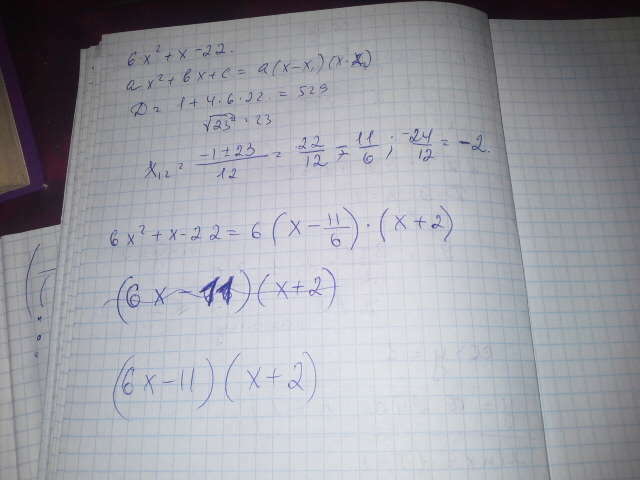 6x² + x - 22.
ax² + bx + c = a(x - x₁)(x - x₂)
D = 1 + 4 · 6 · 22 = 529
√23² = 23
x₁,₂ = (-1 ± 23)/12 = 22/12 = 11/6 ; -24/12 = -2.
6x² + x - 22 = 6(x - 11/6) · (x + 2)
(6x - 11)(x + 2)
(6x - 11)(x + 2)